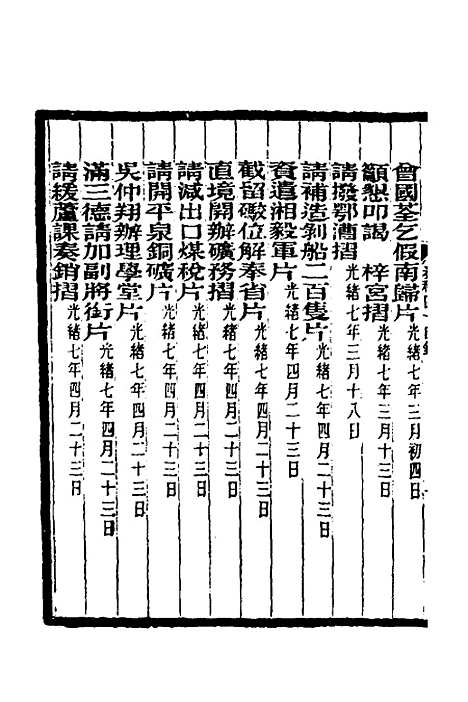 曾國荃乞假南歸片 光緒七年三月初四日
籲懇叩謁 梓宮摺 光緒七年三月十三日
請撥鄂漕摺 光緒七年三月十八日
請補造剝船二百隻片 光緒七年四月二十三日
資遣湘毅軍片 光緒七年四月二十三日
截留礮位解奉省片 光緒七年四月二十三日
直境開辦礦務摺 光緒七年四月二十三日
請減出口煤稅片 光緒七年四月二十三日
請開平泉銅礦片 光緒七年四月二十三日
吳仲翔辦理學堂片 光緒七年四月二十三日
滿三德請加副將銜片 光緒七年四月二十三日
請緩蘆課奏銷摺 光緒七年四月二十三日